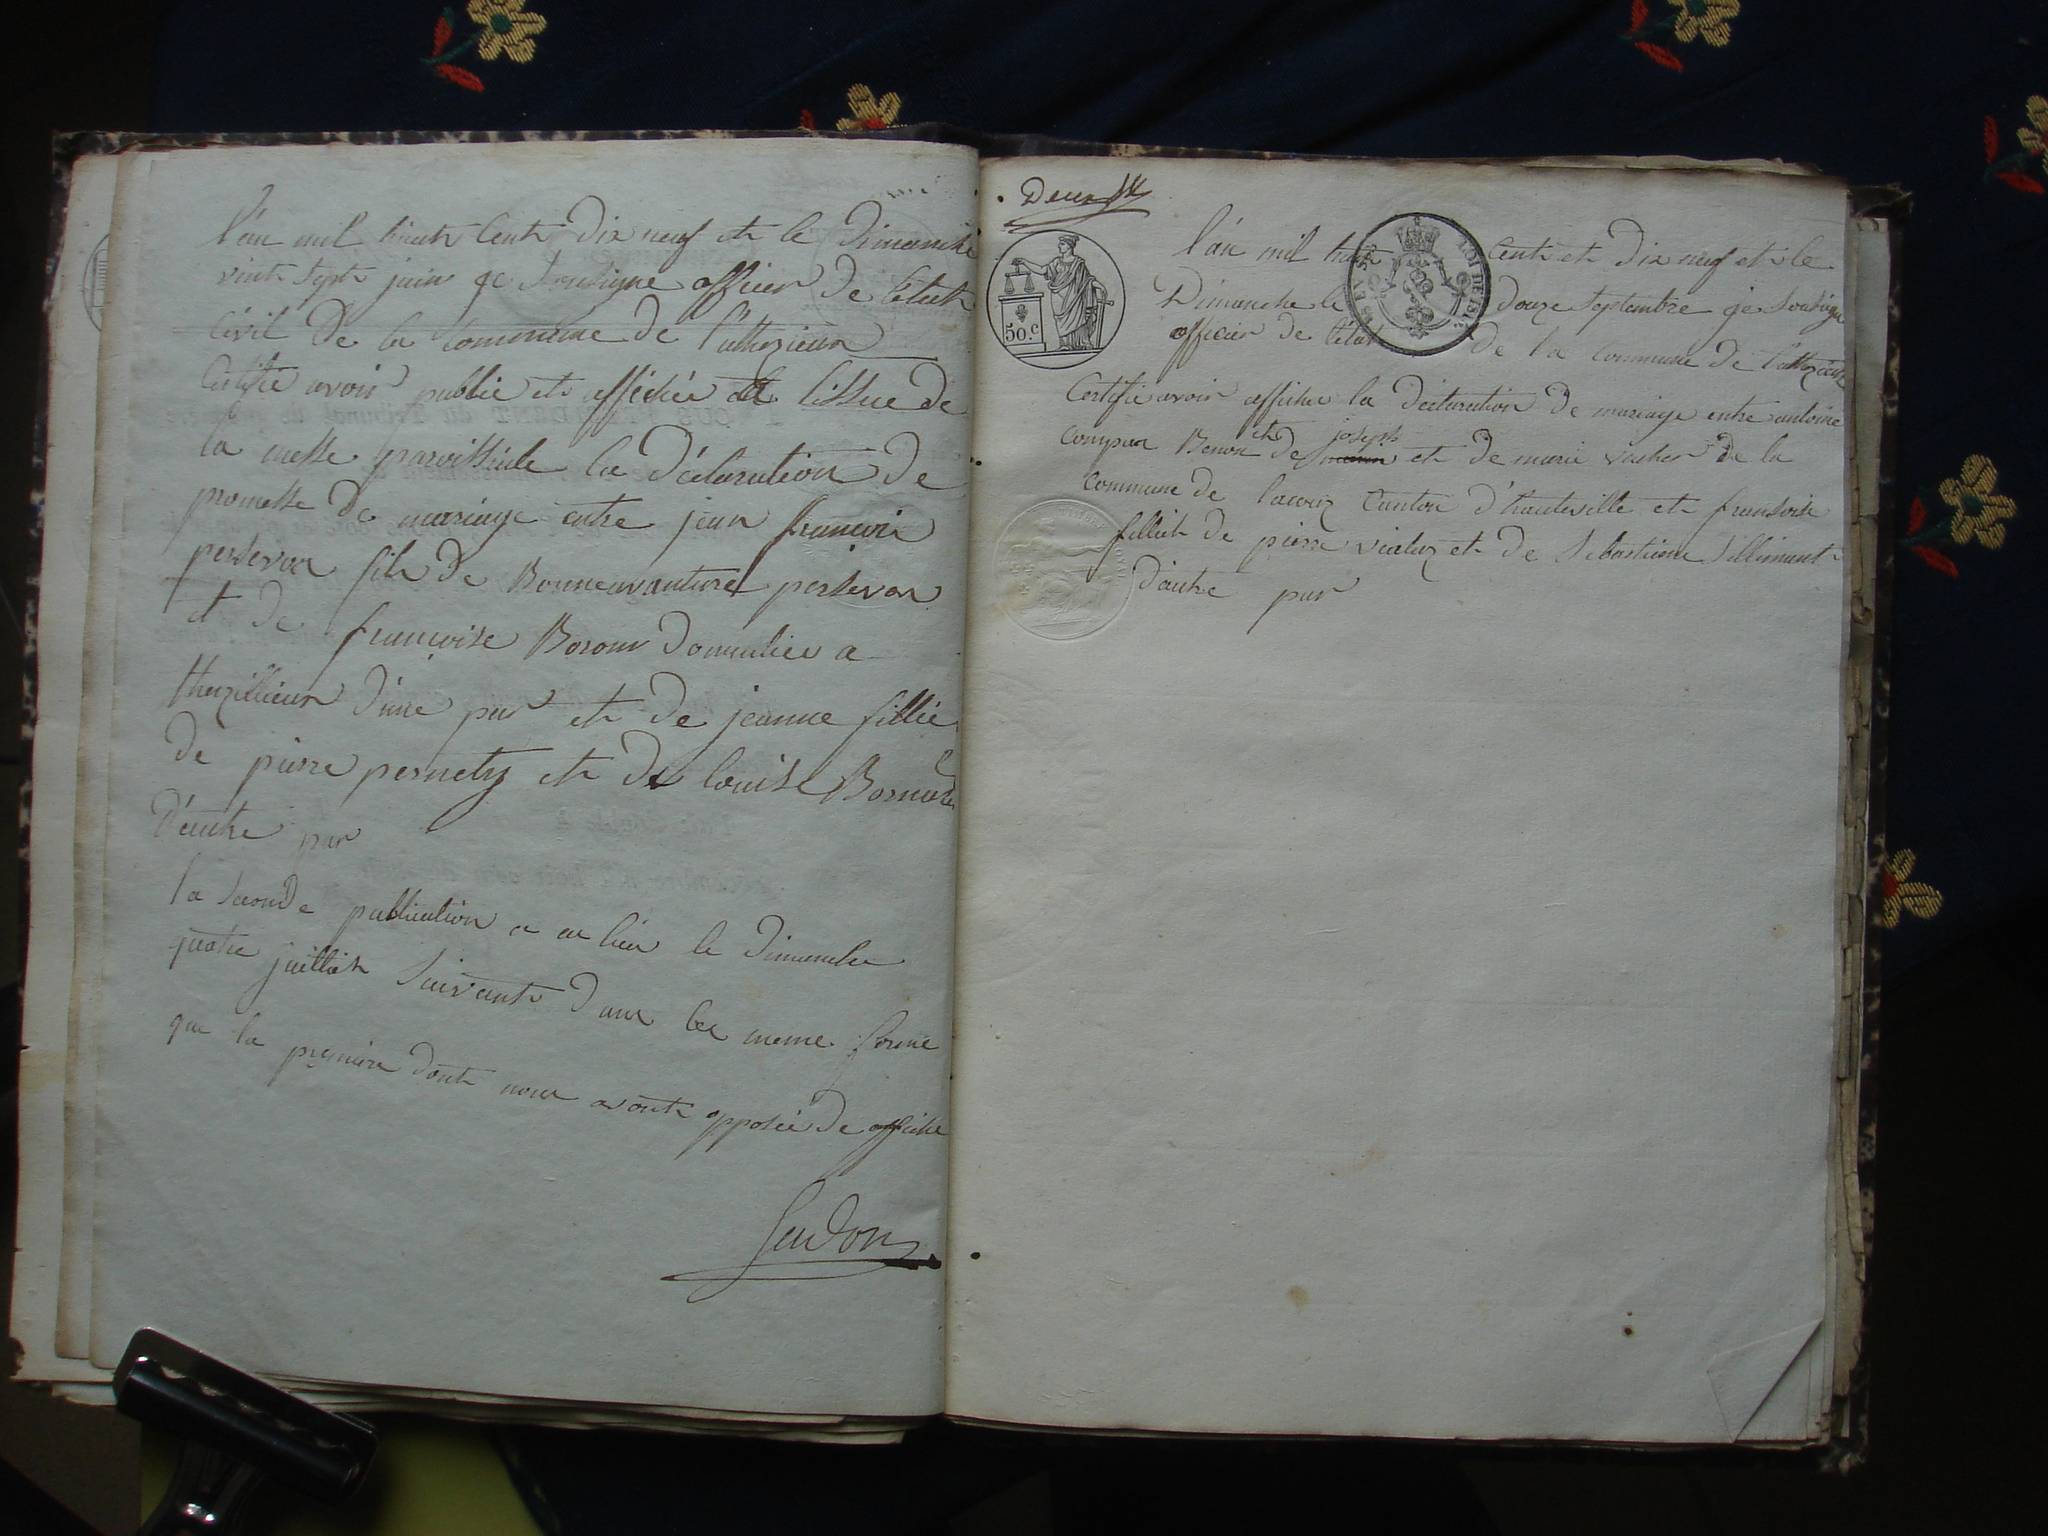 l'an mil huit Cent dix neuf et le Dimanche
vint sept juin je Soussigne officier de l'état
Civil De la Commune de l'athezieux
Certifie avoir publie et affichée a lissue de
la messe paroissiale la Déclaration de
promesse De mariage entre jean francois
perseron fils de Bonneavanture perseron
et de francoise Borom domicilier a
thezillieux d'une par et de jeanne fillie
de pierre pernety et de louise
D'autre par
la seconde publication a eu lieu le Dimanche
quatre juillet Suivant dans la meme forme
que la premiere dont nous avont opposée de affiche
Deux
50.c
LOI DE 1816
l'an mil huit Cent et dix neuf et le
Dimanche le douze Septembre je Soussigne
officier de l'état de la commune de l'athezieux
Certifie avoir afficher la déclaration de mariage entre antoine
et joseph
compar Benon de et de marie vacher de la
commune de lacoux Canton d'hauteville et fransoise
filliet de pierre vialuz et de Sebastiene Sillimant
D'autre par